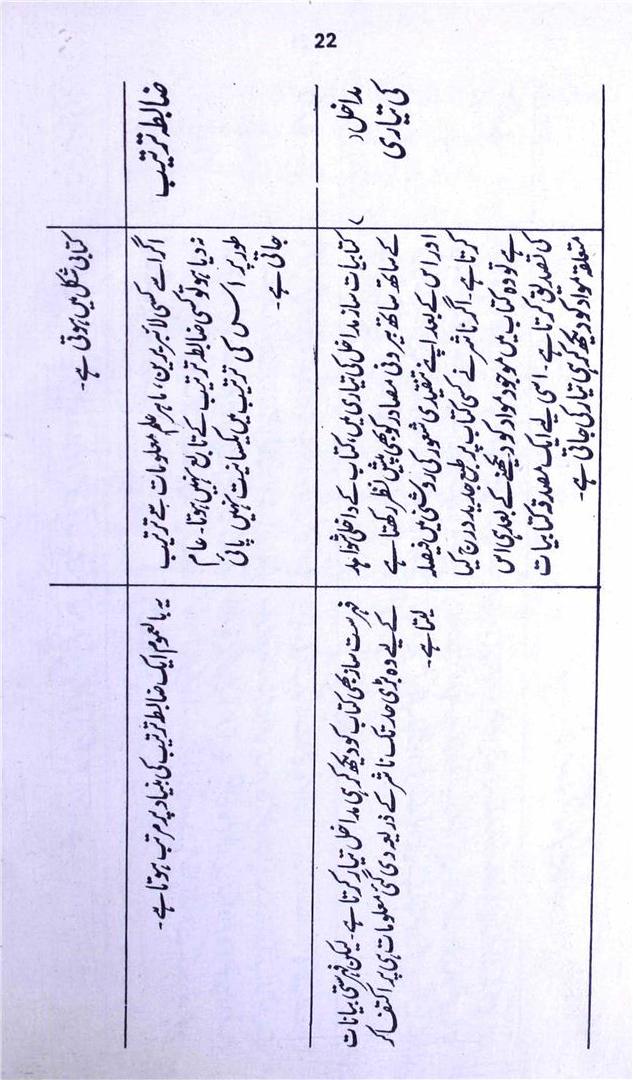 22
کتابی شکل میں ہوتی ہے۔
ضابطہ ترتیب
اگر اسے کسی لائبریرین، ماہر علم معلومات نے ترتیب
نہ دیا ہو تو کسی ضابطہ ترتیب کے تابع نہیں ہوتا۔ عام
طور پر اس کی ترتیب میں یکسانیت نہیں پائی
جاتی ہے۔
یہ بالعموم ایک ضابطہ ترتیب کی بنیاد پر مرتب ہوتا ہے۔
مداخل
کی تیاری
کتابیات ساز مداخل کی تیاری میں، کتاب کے داخلی شواہد
کے ساتھ ساتھ بیرونی مصادر کو بھی پیش نظر رکھتا ہے
اور اس کے بعد اپنے تنقیدی شعور کی روشنی میں فیصلہ
کرتا ہے۔ اگر ناشر نے کسی کتاب پر طبع جدید درج کیا
ہے تو وہ کتاب میں موجود مواد کو دیکھنے کے بعد ہی اس
کی تصدیق کرتا ہے۔ اسی لیے ایک مصدقہ کتابیات
متعلقہ مواد کو دیکھ کر ہی تیار کی جاتی ہے۔
فہرست ساز بھی کتاب کو دیکھ کر ہی مداخل تیار کرتا ہے۔ لیکن فہرستی بیانات
کے لیے وہ بڑی حد تک ناشر کے ذریعہ دی گئی معلومات ہی پر اکتفا کر
لیتا ہے۔